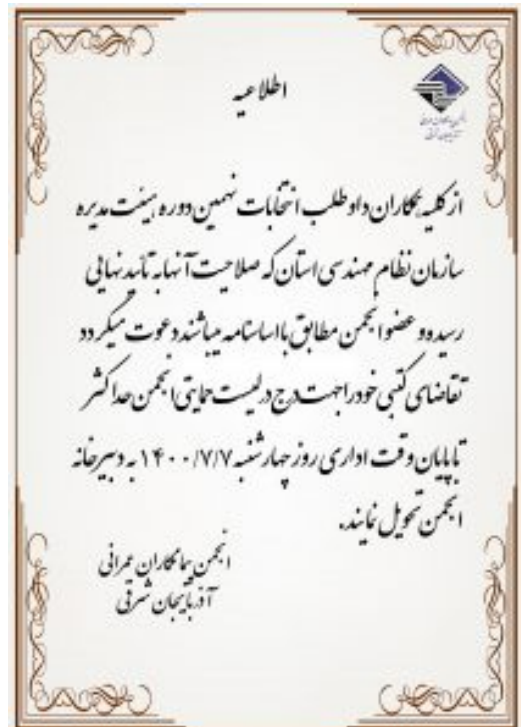 اطلاعیه
از کلیه همکاران داوطلب انتخابات نهمین دوره هیئت مدیره
سازمان نظام مهندسی استان که صلاحیت آنها به تائید نهایی
رسیده و عضو انجمن مطابق بااساسنامه میباشند دعوت میگردد
تقاضای کتبی خود را جهت درج در لیست حمایتی انجمن حداکثر
تا پایان وقت اداری روز چهارشنبه ۱۴۰۰/۷/۷ به دبیرخانه
انجمن تحویل نمایند.
انجمن پیمانکاران عمرانی
آذربایجان شرقی